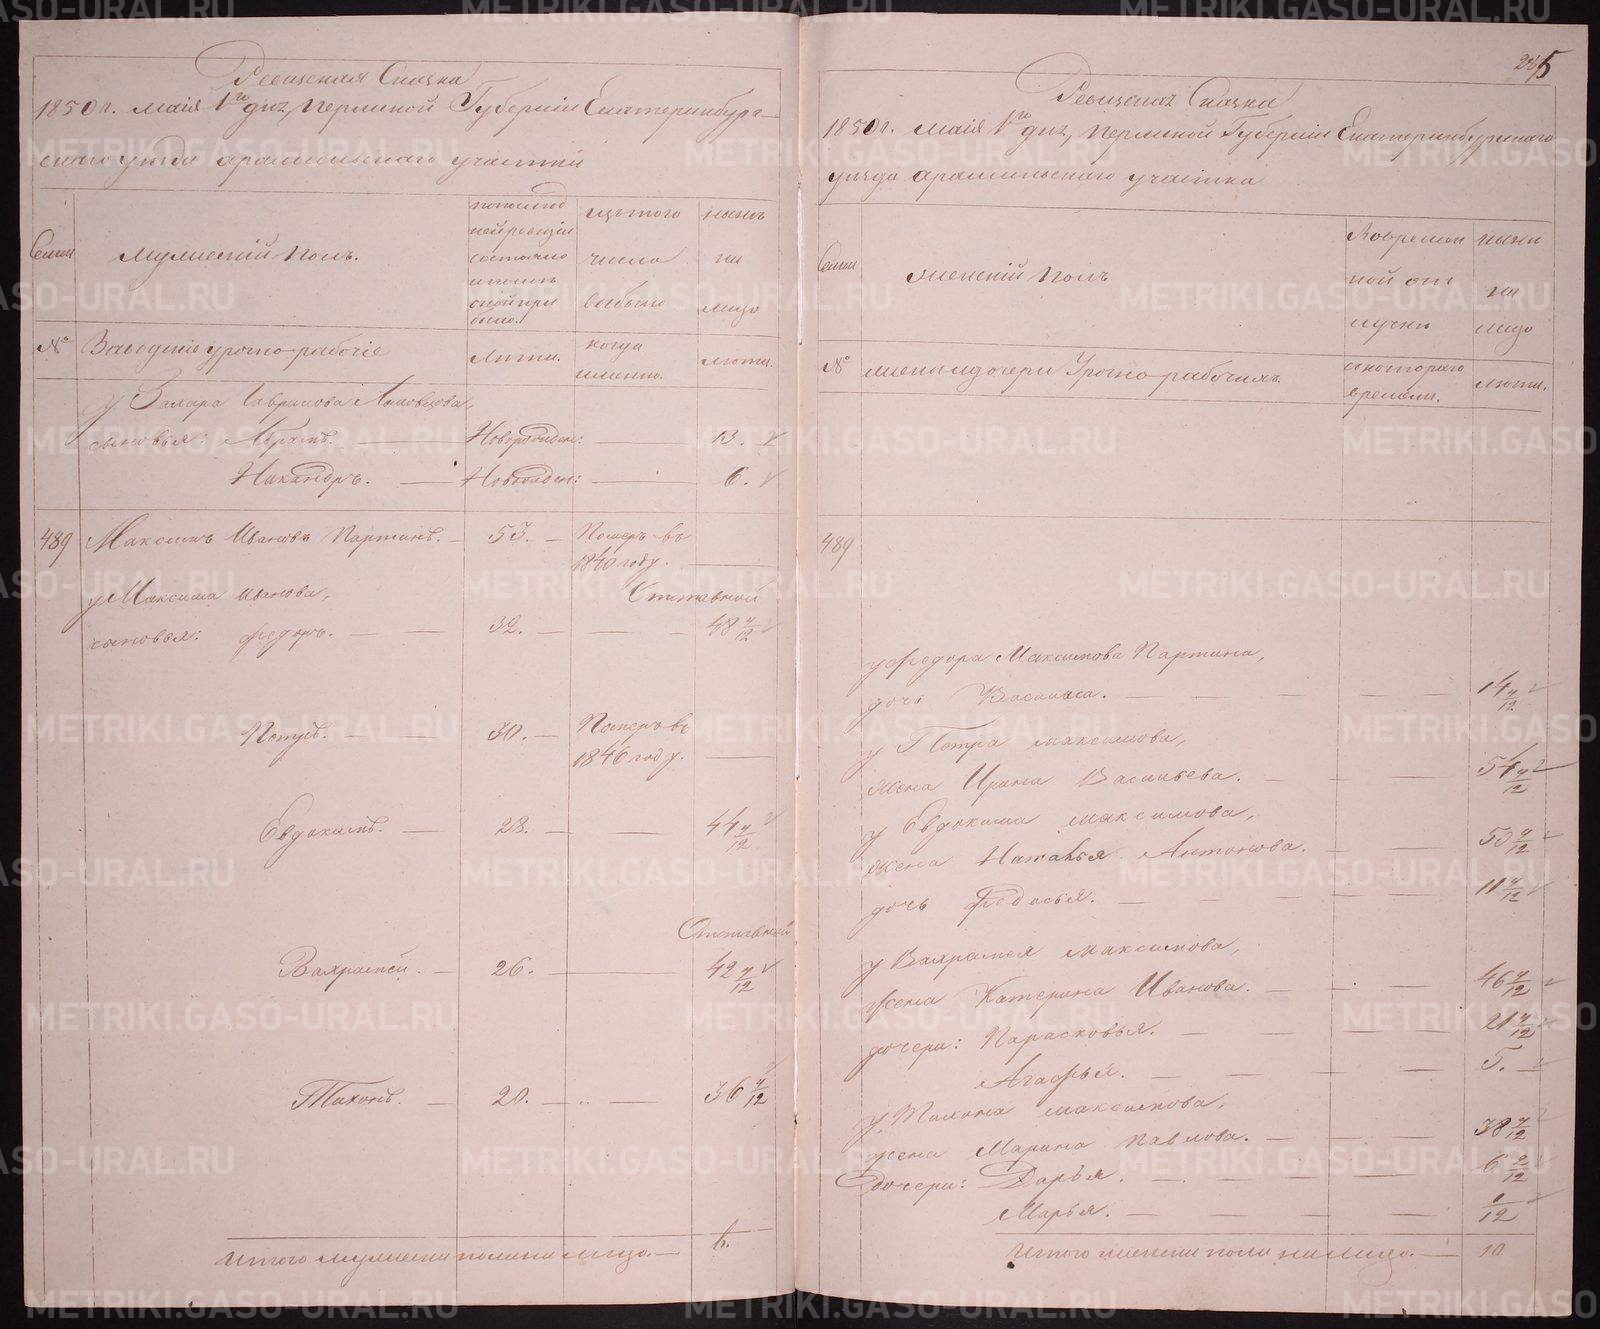 Ревизская Сказка
1850 г. маія 1го дня, Пермской Губерніи Екатеринбург-
скаго уезда арамильскаго участка
Семьи
мужескій полъ.
по последней ревизіи состояло и после оной прибыло.
изъ того числа выбыло
ныне на лицо
№
Заводскіе урочно-рабочіе
Лета.
когда именно.
лета.
у Захара Гаврилова
сыновья: Абрамъ. Новорожден: 13.
Никандръ. Новорожден: 6.
489 Максимъ Ивановъ Партинъ. 53. Померъ въ
1840 году.
у Максима Иванова, Отставной
сыновья: Федоръ. 32. 48 4/12
Петръ. 30. Померъ въ
1846 году.
Евдокимъ. 28. 44 4/12
Отставной
Вахрамей. 26. 42 4/12
Тихонъ. 20. 36 4/12
Итого мужеска пола на лицо. 6.
5
Ревизская Сказка
1850 г. маія 1го дня, Пермской Губерніи Екатеринбургскаго
уезда арамильскаго участка
Семьи
женскій полъ
Во временной отлучке
ныне на лицо
№
жены и дочери Урочно-рабочихъ.
с котораго времени.
лета.
489
у Федора Максимова Партина,
дочь Васса. 14 4/12
у Петра Максимова,
жена Ирина Васильева. 54 4/12
у Евдокима Максимова,
жена Наталья Антонова. 50 4/12
дочь Федосья. 11 4/12
у Вахрамея Максимова,
жена Катерина Иванова. 46 4/12
дочери: Парасковья. 21 4/12
Агафья. 5.
у Тихона Максимова,
жена Марина Павлова. 38 4/12
дочери: Дарья. 6
Марья.
Итого женска пола на лицо. 10
METRIKI.GASO-URAL.RU